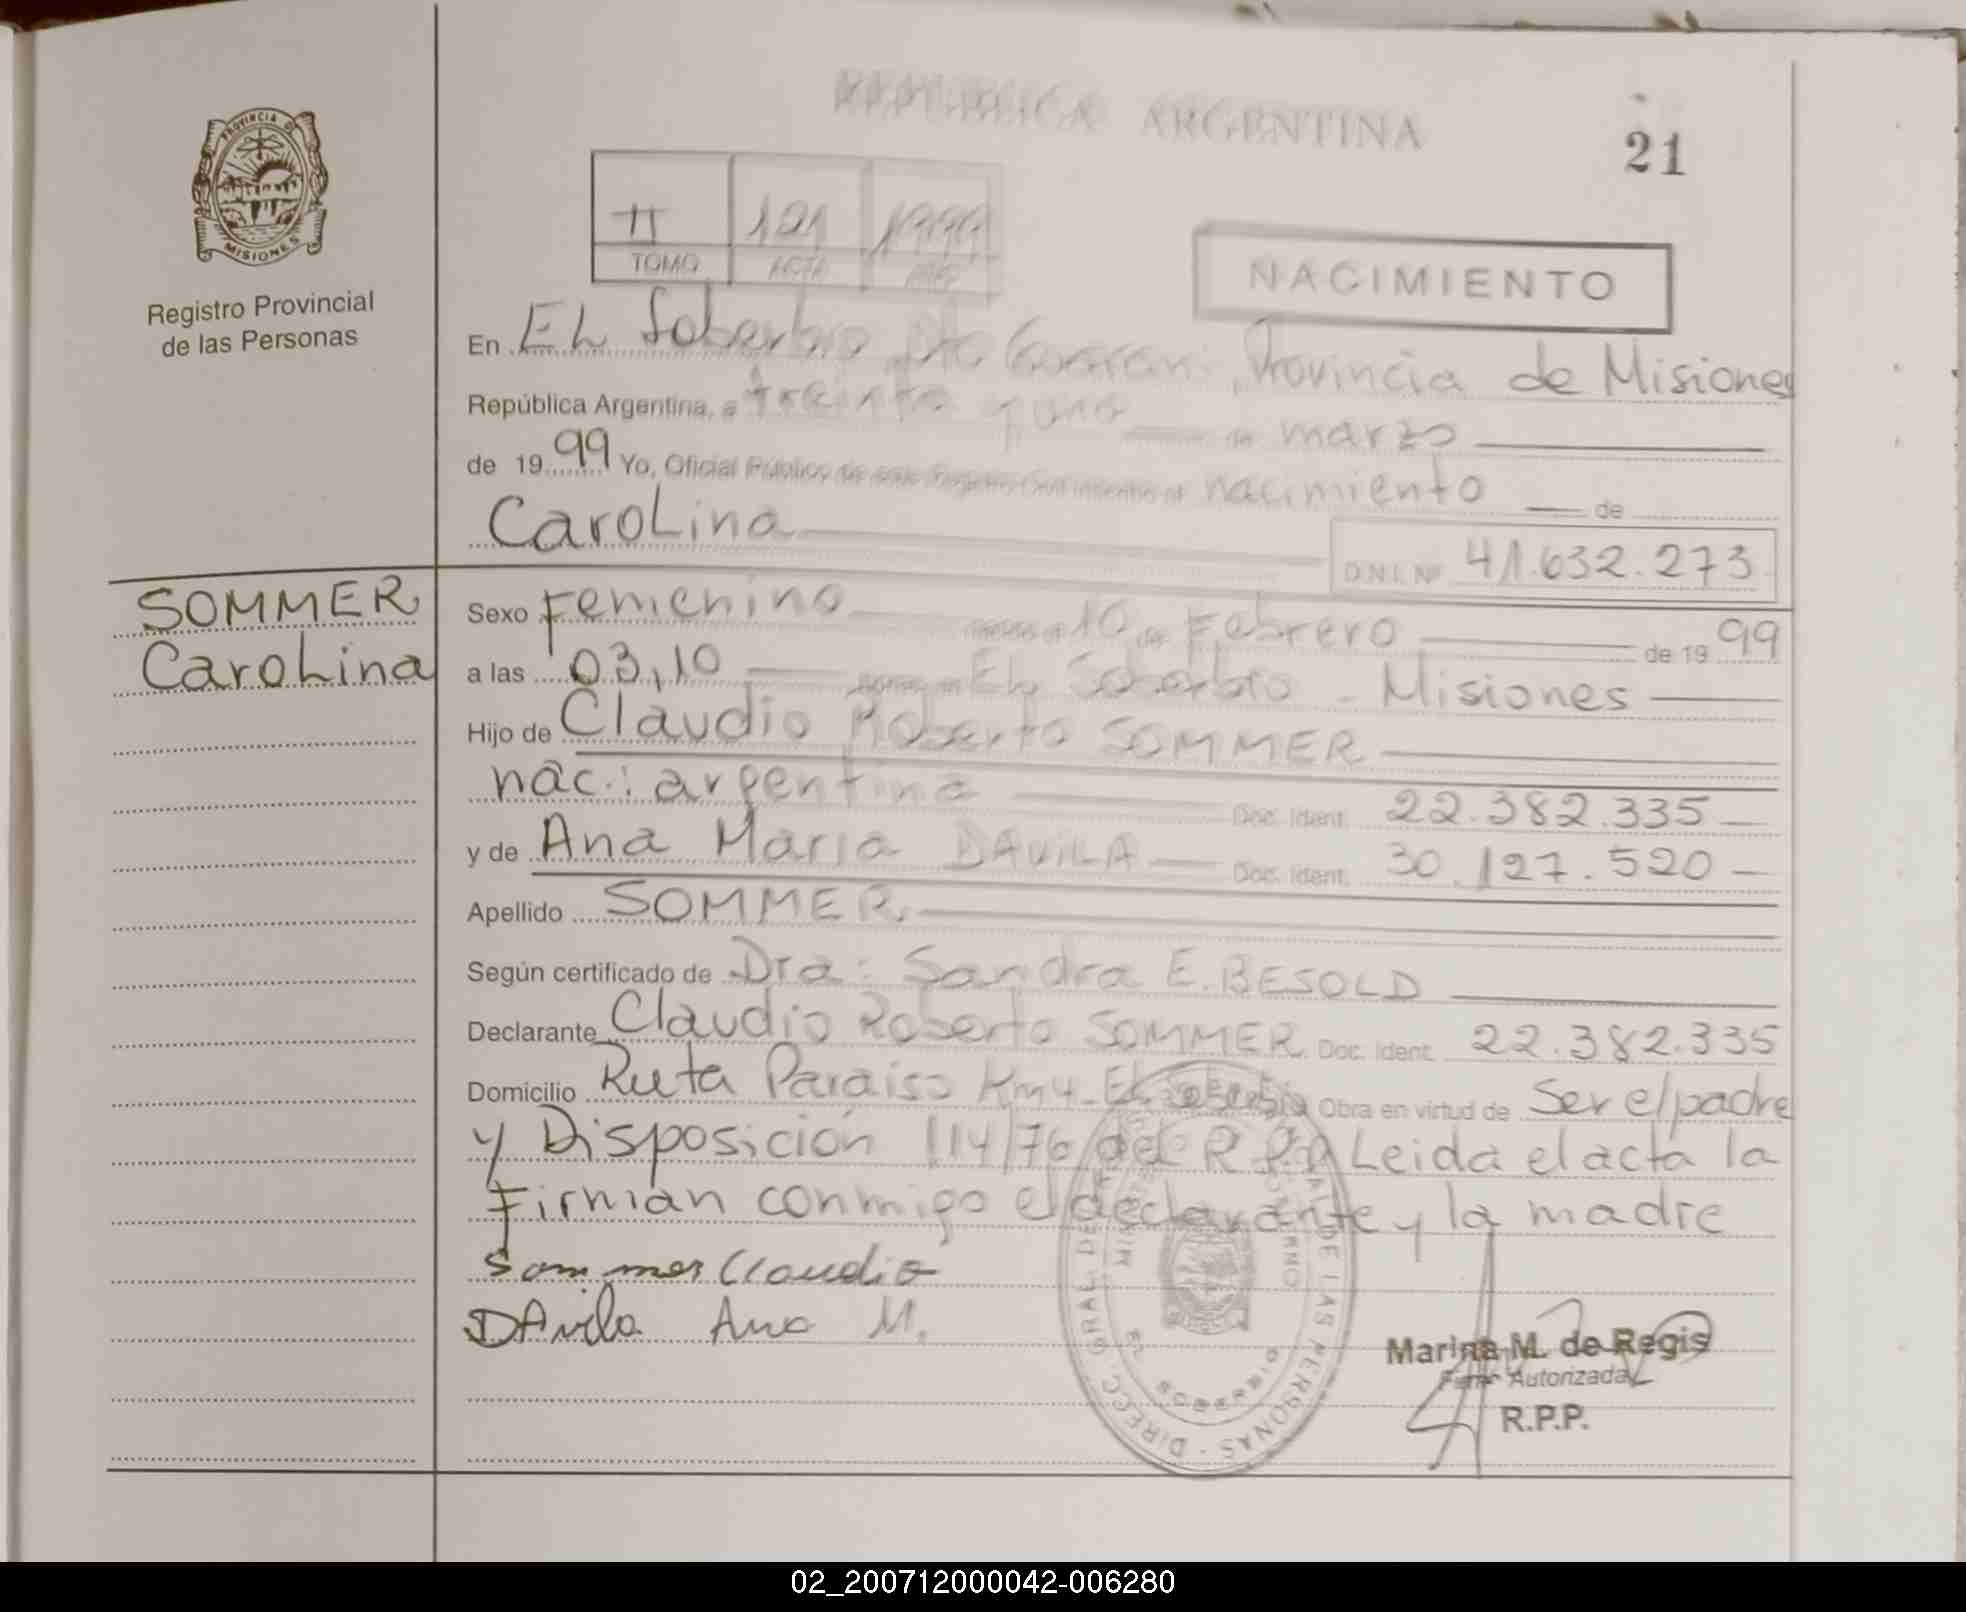 REPUBLICA ARGENTINA
21
PROVINCIA DE
MISIONES
Registro Provincial
de las Personas
II 121 1999
TOMO ACTA AÑO
NACIMIENTO
En EL Soberbio Dto Guaraní, Provincia de Misiones
República Argentina, a treinta y uno de marzo
de 1999 Yo, Oficial Público de este Registro Civil inscribo el nacimiento de
Carolina
D.N.I. Nº 41.632.273
SOMMER
Carolina
Sexo Femenino 10 de Febrero de 1999
a las 03,10 El Soberbio - Misiones
Hijo de Claudio Roberto SOMMER
nac.: argentina Doc. Ident. 22.382.335
y de Ana Maria DAVILA Doc. Ident. 30.127.520
Apellido SOMMER
Según certificado de Dra: Sandra E. BESOLD
Declarante Claudio Roberto SOMMER Doc. Ident. 22.382.335
Domicilio Ruta Paraiso Km 4 - El Soberbio Obra en virtud de Ser el padre
y Disposición 114/76 del R.P.P. Leida el acta la
Firman conmigo el declarante y la madre
Sommer Claudio
DAvila Ana M.
DIRECC. GRAL. DE LAS PERSONAS
EL SOBERBIO
Marina M. de Regis
Func. Autorizada
R.P.P.
02_200712000042-006280